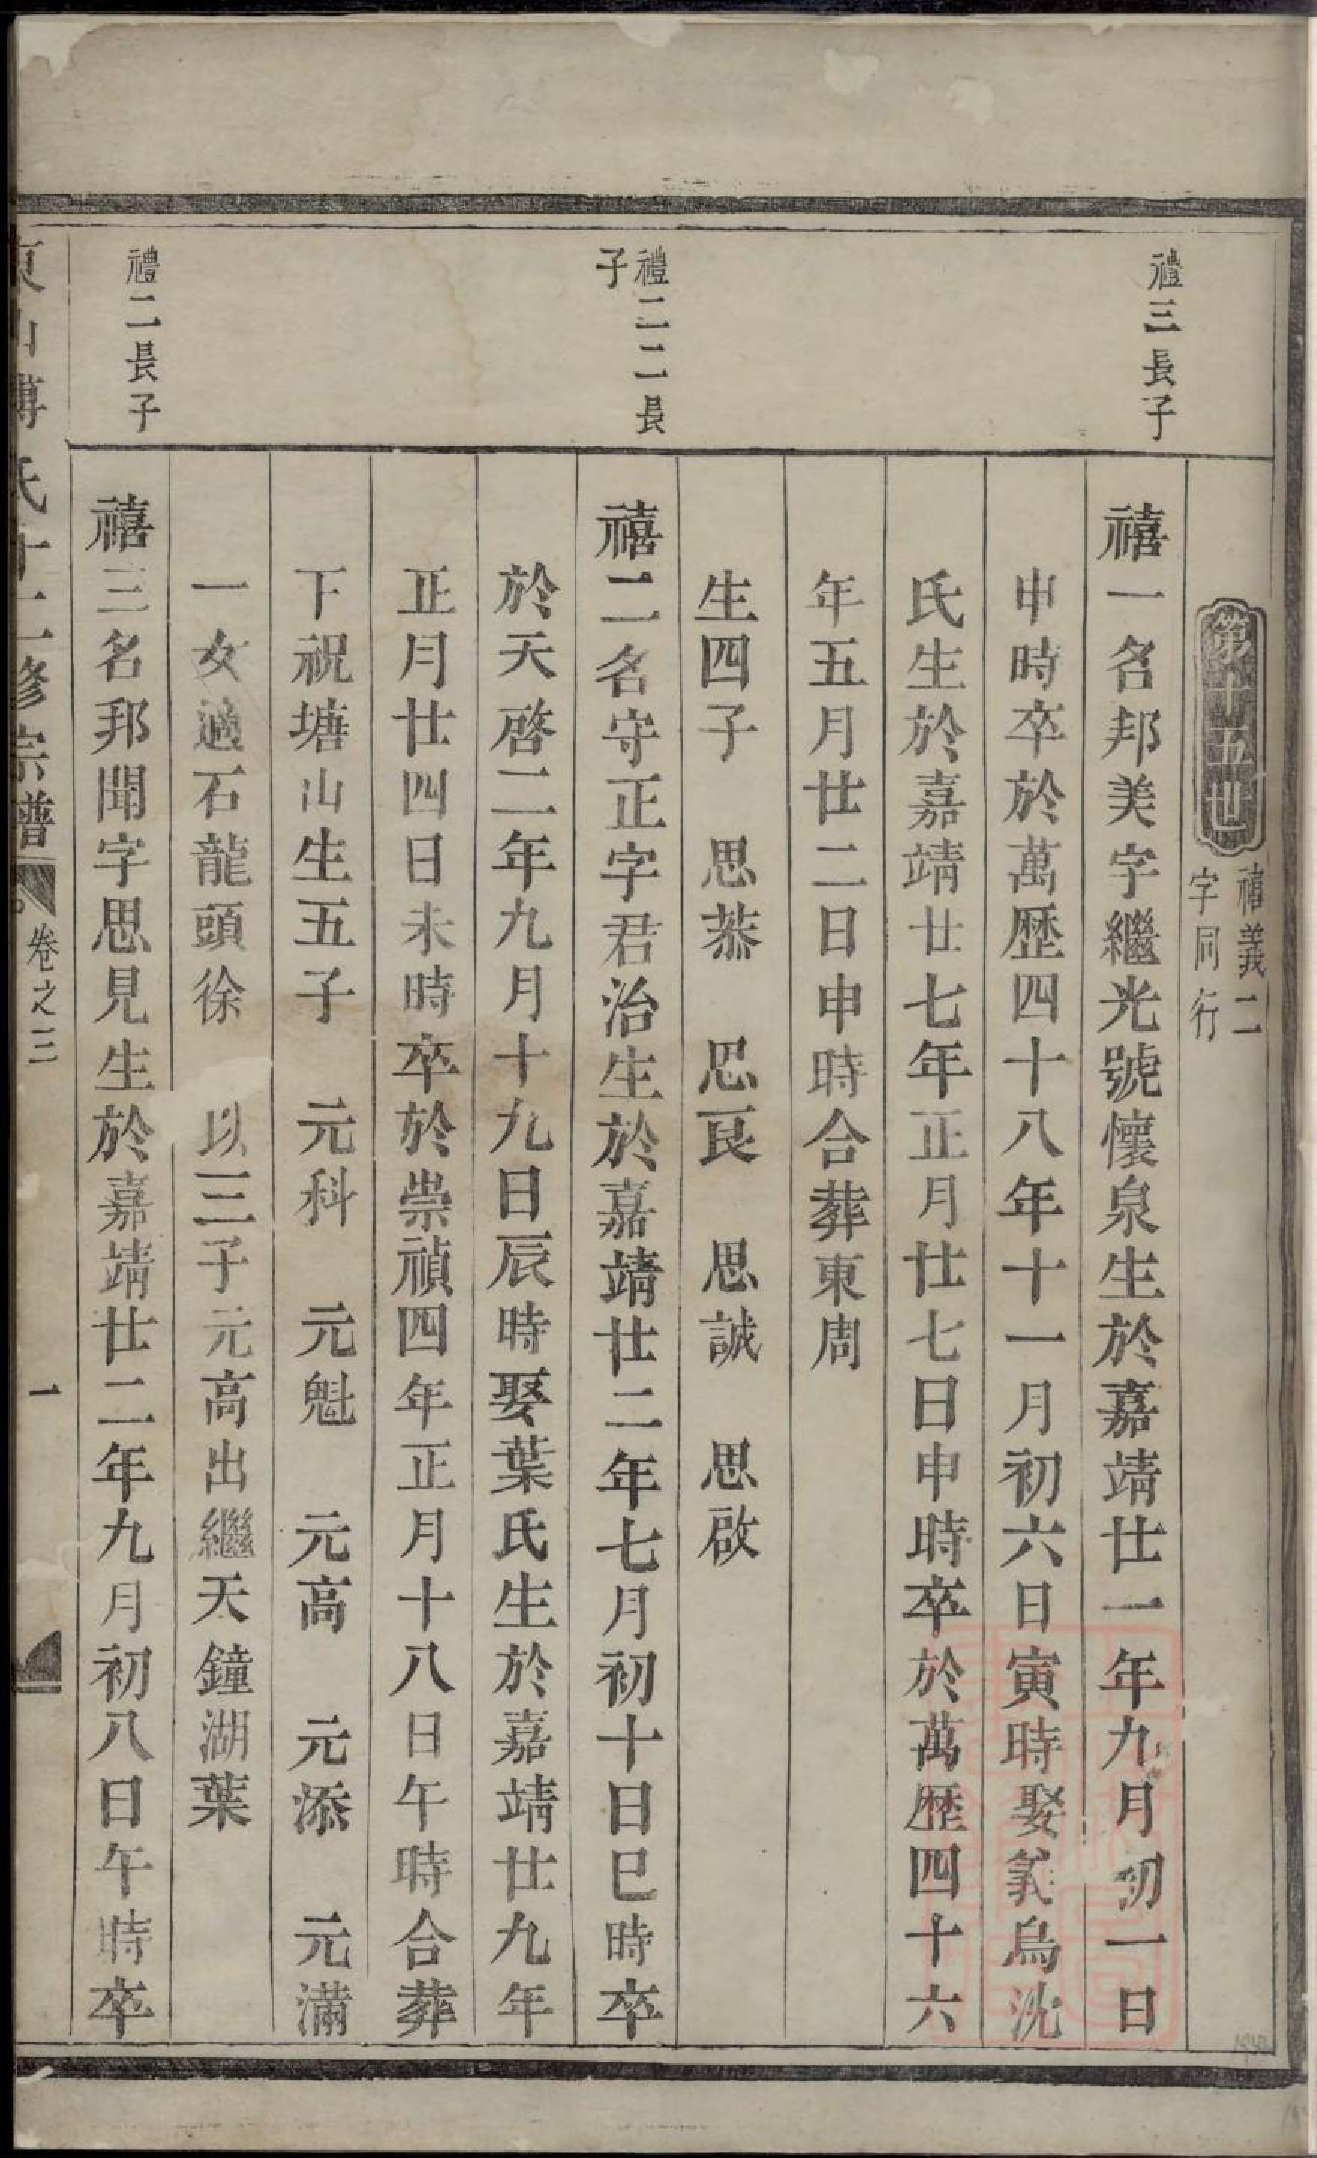 第十五世
禧義二
字同行
禮三長子
禧一名邦美字繼光號懷泉生於嘉靖廿一年九月初一日
申時卒於萬歷四十八年十一月初六日寅時娶義烏沈
氏生於嘉靖廿七年正月廿七日申時卒於萬歷四十六
年五月廿二日申時合葬東周
生四子　思恭　思良　思誠　思啟
禮二二長
子
禧二名守正字君治生於嘉靖廿二年七月初十日巳時卒
於天啓二年九月十九日辰時娶葉氏生於嘉靖廿九年
正月廿四日未時卒於崇禎四年正月十八日午時合葬
下祝塘山生五子　元科　元魁　元高　元添　元滿
一女適石龍頭徐　以三子元高出繼天鐘湖葉
禮二長子
禧三名邦聞字思見生於嘉靖廿二年九月初八日午時卒
東山傅氏十二修宗譜
卷之三
一